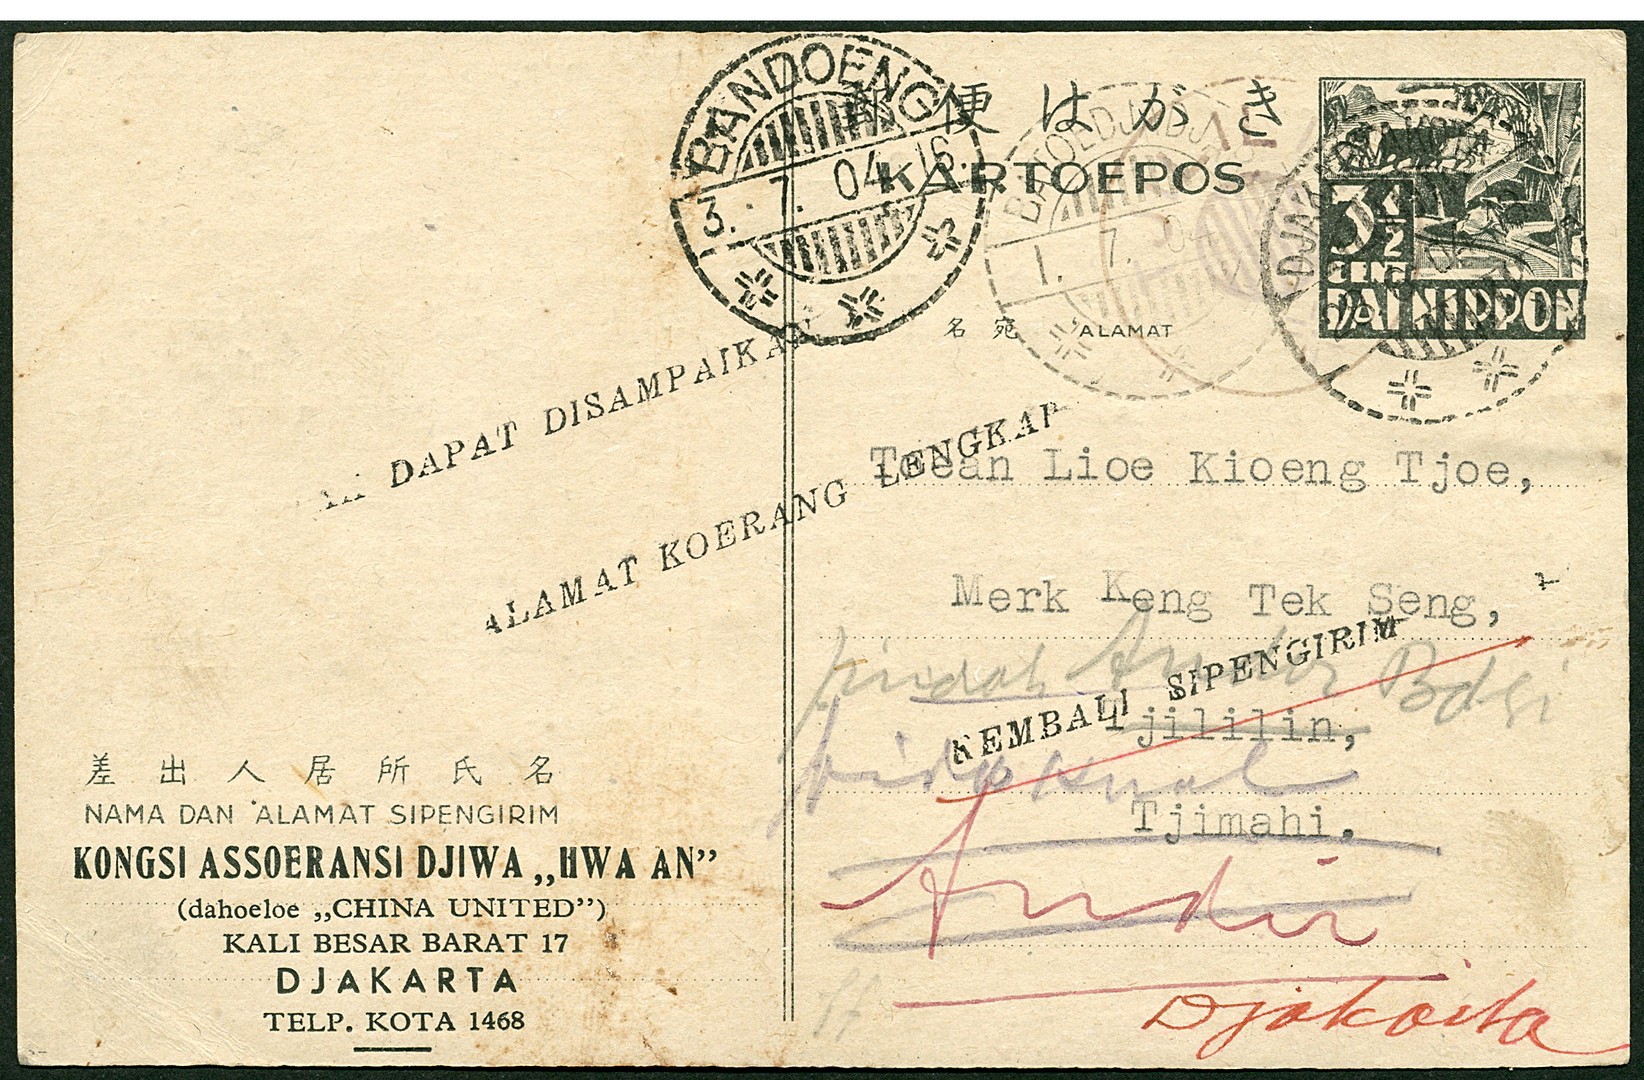 郵便はがき
KARTOEPOS
3½
CENT
DAI NIPPON
BANDOENG
3. 7. 04. 16
1. 7. 04
名宛 ALAMAT
DAPAT DISAMPAIKAN
ALAMAT KOERANG LENGKAP
Toean Lioe Kioeng Tjoe,
Merk Keng Tek Seng,
pindah Andir
KEMBALI SIPENGIRIM
Tjililin,
Tjimahi.
Andir
Djakarta
差出人居所氏名
NAMA DAN ALAMAT SIPENGIRIM
KONGSI ASSOERANSI DJIWA „HWA AN”
(dahoeloe „CHINA UNITED”)
KALI BESAR BARAT 17
DJAKARTA
TELP. KOTA 1468